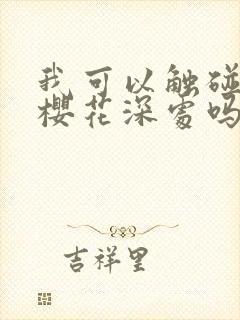 我可以触碰
樱花深处吗
吉祥里